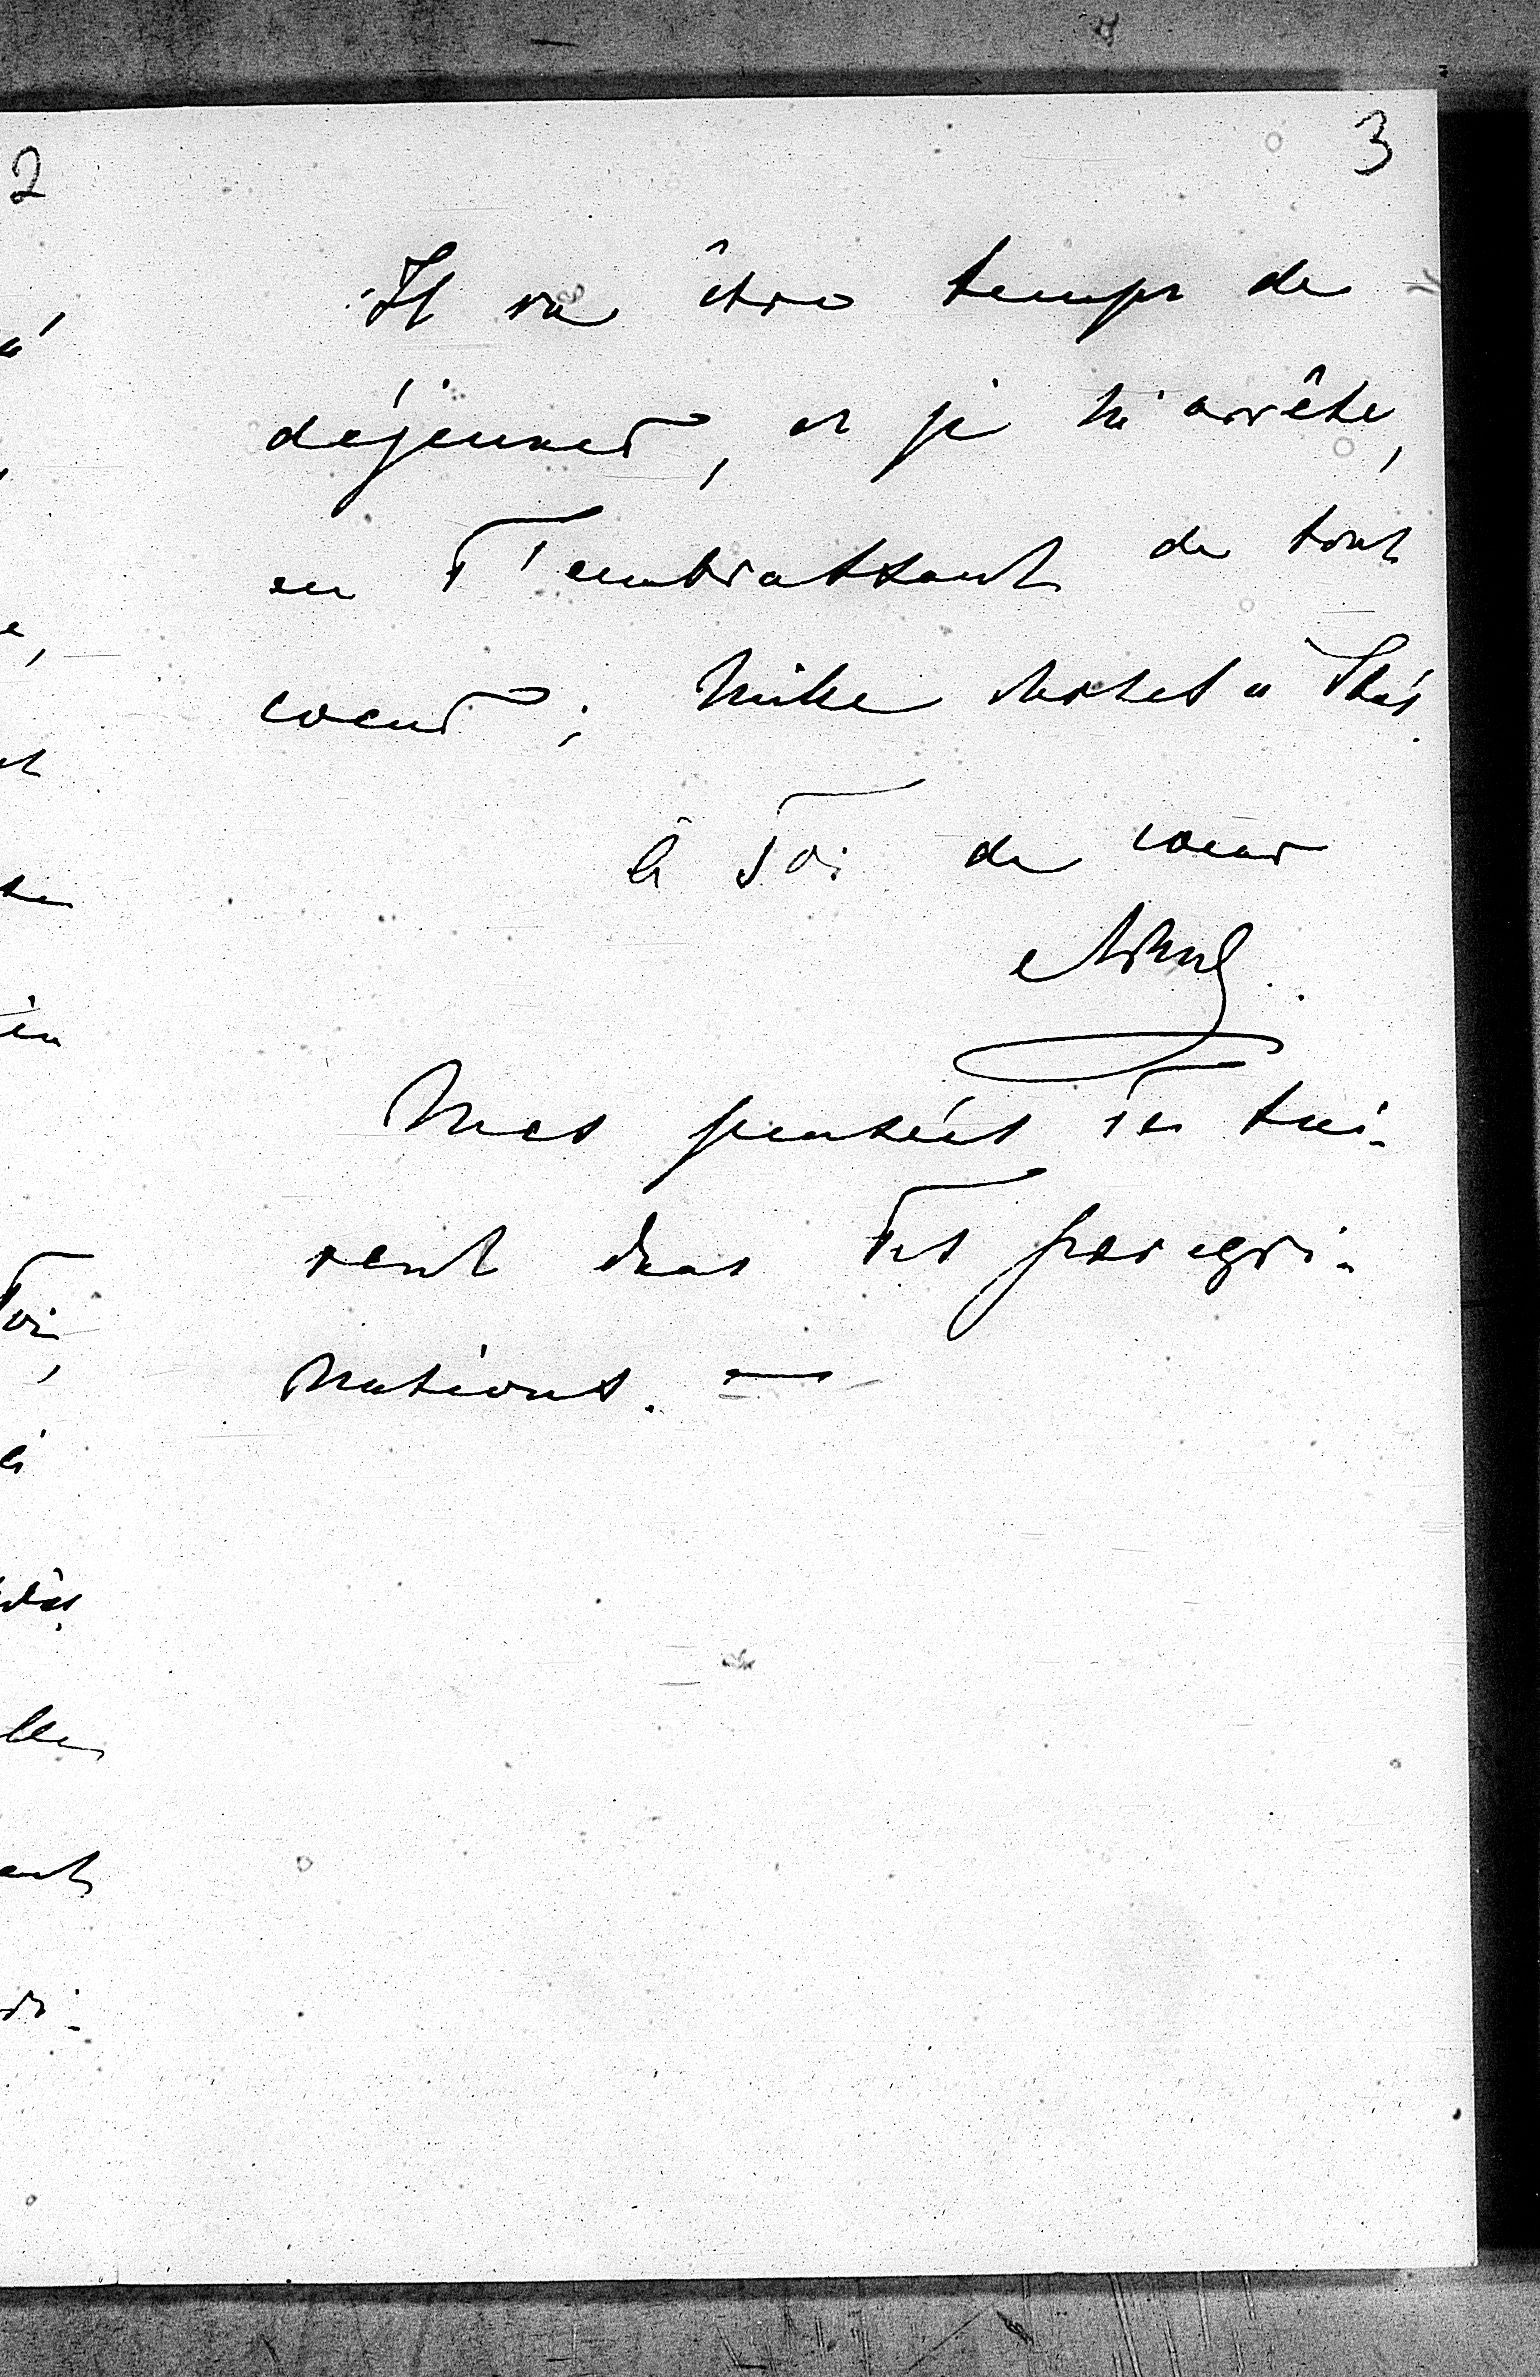 3
Il va être temps de
déjeuner, et je m'arrête,
en T'embrassant de tout
coeur; mille choses à
à Toi de coeur
Mes pensées Te sui-
vent dans Tes perégri-
nations. —
2